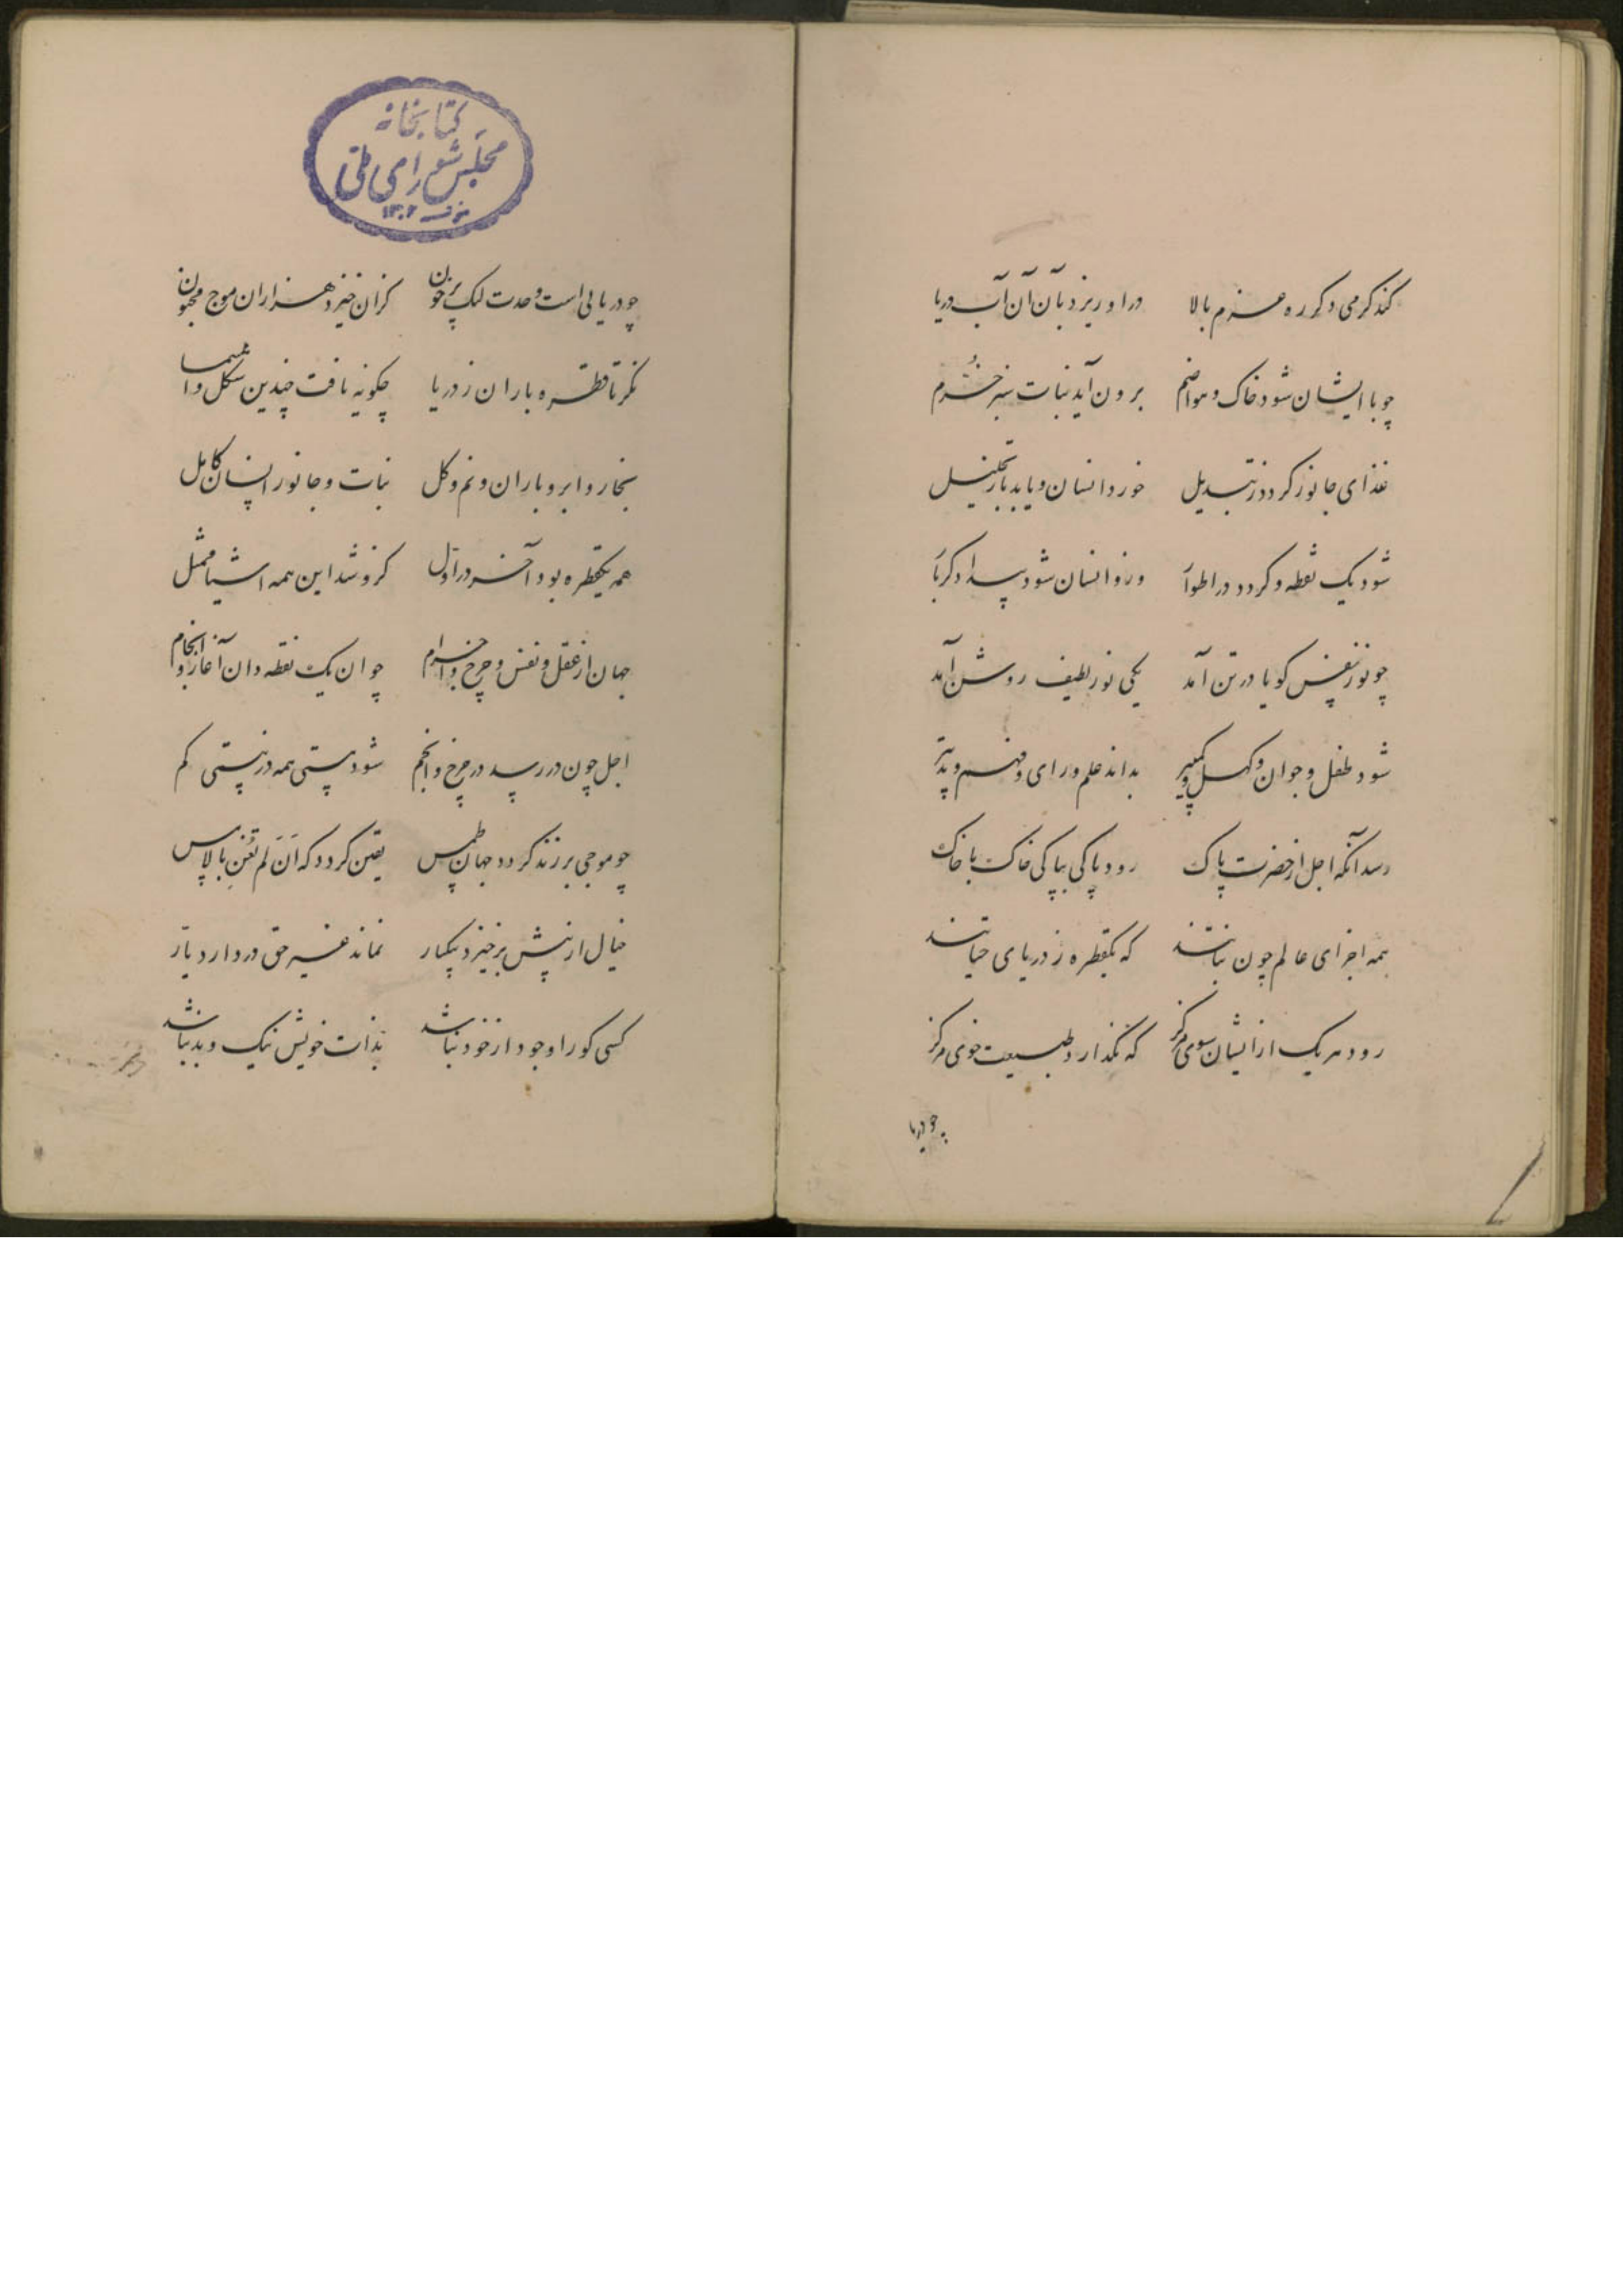 کند گرمی دگر ره عزم بالا در او ریزد بآن آن آب دریا
چو با ایشان شود خاک و هوا ضم برون آید نبات سبز خرم
غذای جانور گردد ز تبدیل خورد انسان و یابد باز تحلیل
شود یک نقطه و گردد در اطوار وزو انسان شود پیدا دگر بار
چو نور نفس گویا در تن آمد یکی نور لطیف روشن آمد
شود طفل و جوان و کهل و کمپیر بداند علم و رای و فهم و تدبیر
رسد آنگه اجل از حضرت پاک رود پاکی بپاکی خاک با خاک
همه اجزای عالم چون نباتند که یکقطره ز دریای حیاتند
رود هر یک از ایشان سوی مرکز که نگذارد طبیعت خوی مرکز
چو دریا
کتابخانه
مجلس شورای ملی
۱۳۰۲
چو دریائی است وحدت لیک پر خون کزان خیزد هزاران موج مجنون
نگر تا قطره باران ز دریا چگونه یافت چندین شکل و اسما
بخار و ابر و باران و نم و گل نبات و جانور انسان کامل
همه یکقطره بود آخر در اول کزو شد این همه اشیا ممثل
جهان از عقل و نفس و چرخ و اجرام چو آن یک نقطه دان آغاز و انجام
اجل چون در رسد در چرخ و انجم شود هستی همه در نیستی گم
چو موجی برزند گردد جهان طمس یقین گردد که اَن لم تغن بالامس
خیال از پیش برخیزد بیکبار نماند غیر حق در دار دیار
کسی کو را وجود از خود نباشد بذات خویش نیک و بد نباشد